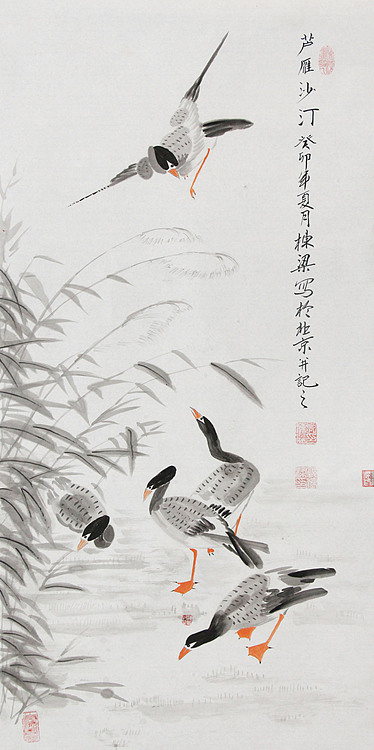 芦雁沙汀癸卯年夏月栋梁写於北京并记之